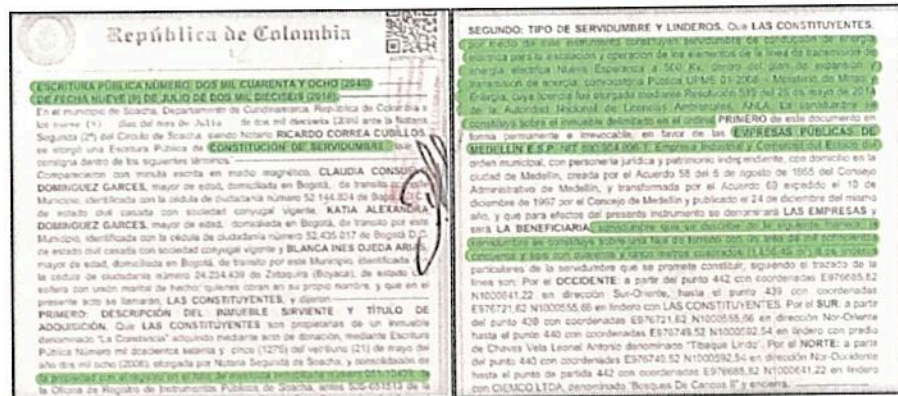 República de Colombia
ESCRITURA PÚBLICA NÚMERO: DOS MIL CUARENTA Y OCHO (2048)
DE FECHA NUEVE (9) DE JULIO DE DOS MIL DIECISEIS (2016)
En el municipio de Soacha, Departamento de Cundinamarca, República de Colombia a
los nueve días del mes de Julio de dos mil dieciséis (2016) ante la Notaria
Segunda (2ª) del Círculo de Soacha, siendo Notario RICARDO CORREA CUBILLOS
se otorgó una Escritura Pública de CONSTITUCIÓN DE SERVIDUMBRE que
consigna dentro de los siguientes términos:
Comparecieron con minuta escrita en medio magnético, CLAUDIA CONSUELO
DOMINGUEZ GARCES, mayor de edad, domiciliada en Bogotá, de transito por este
Municipio, identificada con la cédula de ciudadanía número 52.144.824 de Bogotá D.C.
de estado civil casada con sociedad conyugal vigente, KATIA ALEXANDRA
DOMINGUEZ GARCES, mayor de edad, domiciliada en Bogotá, de transito por este
Municipio, identificada con la cédula de ciudadanía número 52.435.017 de Bogotá D.C.
de estado civil casada con sociedad conyugal vigente y BLANCA INES OJEDA ARIAS,
mayor de edad, domiciliada en Bogotá, de transito por este Municipio, identificada
la cédula de ciudadanía número 24.234.439 de Zetaquira (Boyacá), de estado
soltera con unión marital de hecho, quienes obran en su propio nombre, y que en el
presente acto se llamarán, LAS CONSTITUYENTES, y dijeron:
PRIMERO: DESCRIPCIÓN DEL INMUEBLE SIRVIENTE Y TÍTULO DE
ADQUISICIÓN. Que LAS CONSTITUYENTES son propietarias de un inmueble
denominado "La Constancia" adquirido mediante acto de donación, mediante Escritura
Pública Número mil doscientos setenta y cinco (1275) del veintiuno (21) de mayo del
año dos mil ocho (2008), otorgada por Notaria Segunda de Soacha, y consolidación de
la propiedad con el registro en el folio de matrícula inmobiliaria número
la Oficina de Registro de Instrumentos Públicos de Soacha, antes 50S-651513 de la
SEGUNDO: TIPO DE SERVIDUMBRE Y LINDEROS. Que LAS CONSTITUYENTES,
por medio de este instrumento constituyen servidumbre de conducción de energía
eléctrica para la instalación y operación de los elementos de la línea de transmisión de
energía eléctrica Nueva Esperanza a 500 Kv, dentro del plan de expansión y
transmisión de energía, convocatoria Pública UPME 01-2008 - Ministerio de Minas y
Energía, cuya licencia fue otorgada mediante Resolución 519 del 26 de mayo de 2014
la Autoridad Nacional de Licencias Ambientales, ANLA. La servidumbre se
constituye sobre el inmueble delimitado en el ordinal PRIMERO de este documento en
forma permanente e irrevocable, en favor de las EMPRESAS PÚBLICAS DE
MEDELLÍN E.S.P. NIT 890.904.996-1, Empresa Industrial y Comercial del Estado del
orden municipal, con personería jurídica y patrimonio independiente, con domicilio en la
ciudad de Medellín, creada por el Acuerdo 58 del 6 de agosto de 1955 del Consejo
Administrativo de Medellín, y transformada por el Acuerdo 69 expedido el 10 de
diciembre de 1997 por el Concejo de Medellín y publicado el 24 de diciembre del mismo
año, y que para efectos del presente instrumento se denominará LAS EMPRESAS y
será LA BENEFICIARIA, servidumbre que se describe de la siguiente manera: la
servidumbre se constituye sobre una faja de terreno con un área de mil ochocientos
cincuenta y seis con cuarenta y cinco metros cuadrados
particulares de la servidumbre que se promete constituir, siguiendo el trazado de la
línea son: Por el OCCIDENTE: a partir del punto 442 con coordenadas E976685,82
N1000641,22 en dirección Sur-Oriente, hasta el punto 439 con coordenadas
E976721,62 N1000555,66 en lindero con LAS CONSTITUYENTES. Por el SUR: a partir
del punto 439 con coordenadas E976721,62 N1000555,66 en dirección Nor-Oriente
hasta el punto 440 con coordenadas E976749,52 N1000592,54 en lindero con predio
de Chaves Vela Leonel Antonio denominado "Tibaque Lindo". Por el NORTE: a partir
del punto 440 con coordenadas E976749,52 N1000592,54 en dirección Nor-Occidente
hasta el punto de partida 442 con coordenadas E976685,82 N1000641,22 en lindero
con CIEMCO LTDA, denominado "Bosques De Canoas II" y encierra.